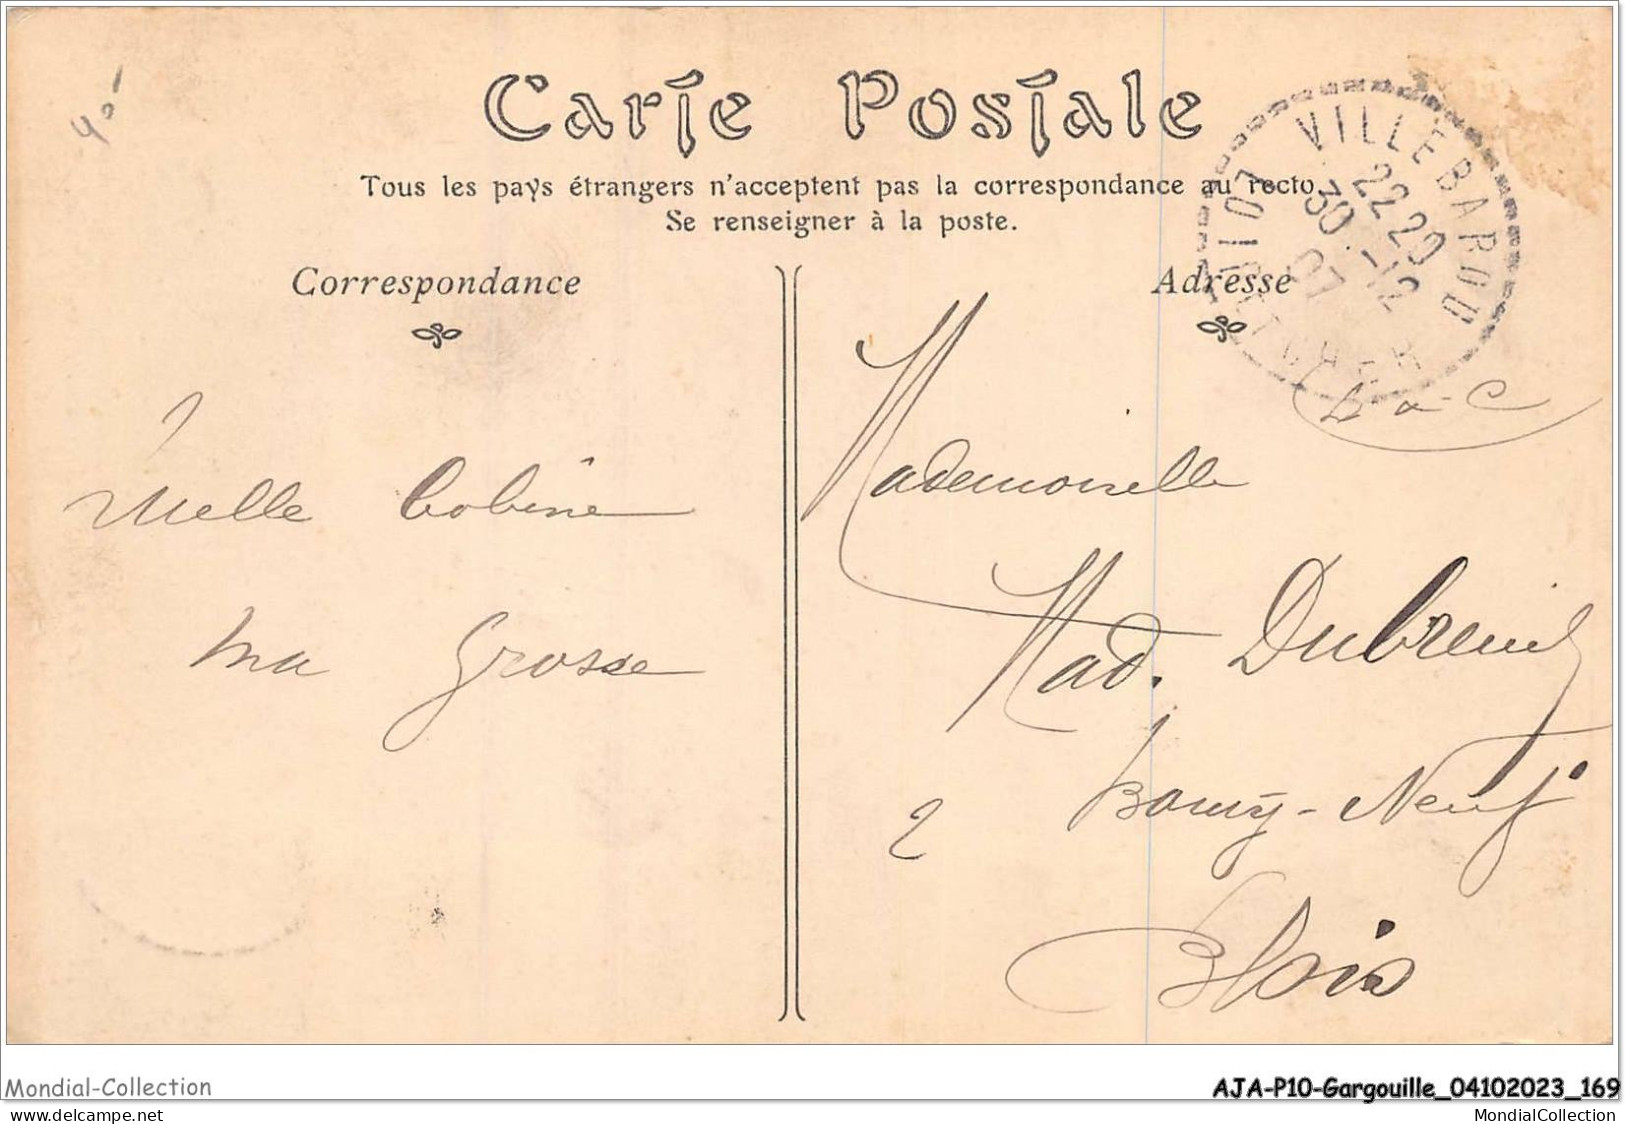 40-
Carte Postale
Tous les pays étrangers n'acceptent pas la correspondance au recto.
Se renseigner à la poste.
VILLEBAROU
22 20
30 -12
07
LOIR ET CHER
Correspondance
Adresse
L-a-C
Melle Cobine
ma grosse
Mademoiselle
Mad. Dubreuil
2 Bourg-Neuf
Blois
Mondial-Collection
AJA-P10-Gargouille_04102023_169
www.delcampe.net
MondialCollection